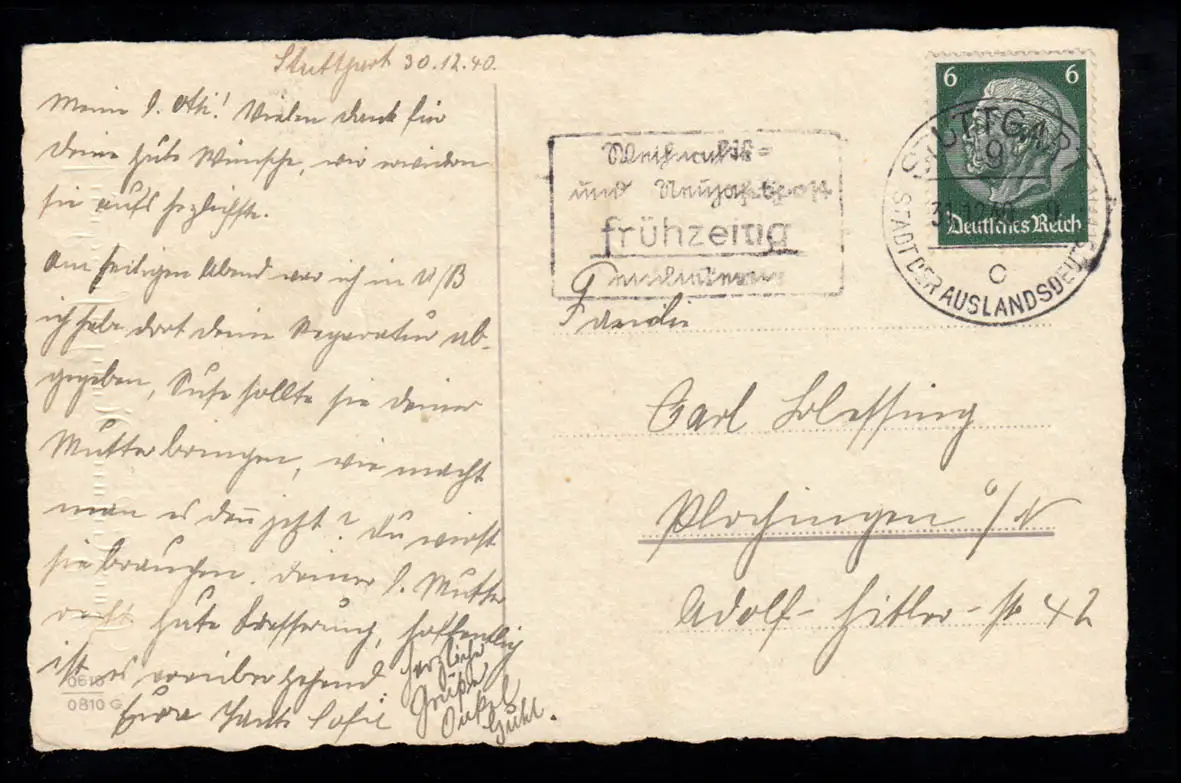 Stuttgart 30.12.40.
Meine l. Otti! Vielen Dank für
deine gute Wünsche, wir erwidern
sie aufs herzlichste.
Am heiligen Abend war ich in U/B
ich habe dort deine Reparatur ab-
gegeben, Suse sollte sie deiner
Mutter bringen, wie macht
man es denn jetzt? Du wirst
sie brauchen. Deiner l. Mutter
recht gute Besserung, hoffentlich
ist es vorübergehend
Eure Tante Sofie
herzliche
Grüße
Onkel
0810 G
Weihnachts-
und Neujahrspost
frühzeitig
einliefern
6 6
Deutsches Reich
STUTTGART
9
31.12.40
STADT DER AUSLANDSDEUTSCHEN
o
Familie
Carl Blessing
Plochingen a/N
Adolf-Hitler-str 42